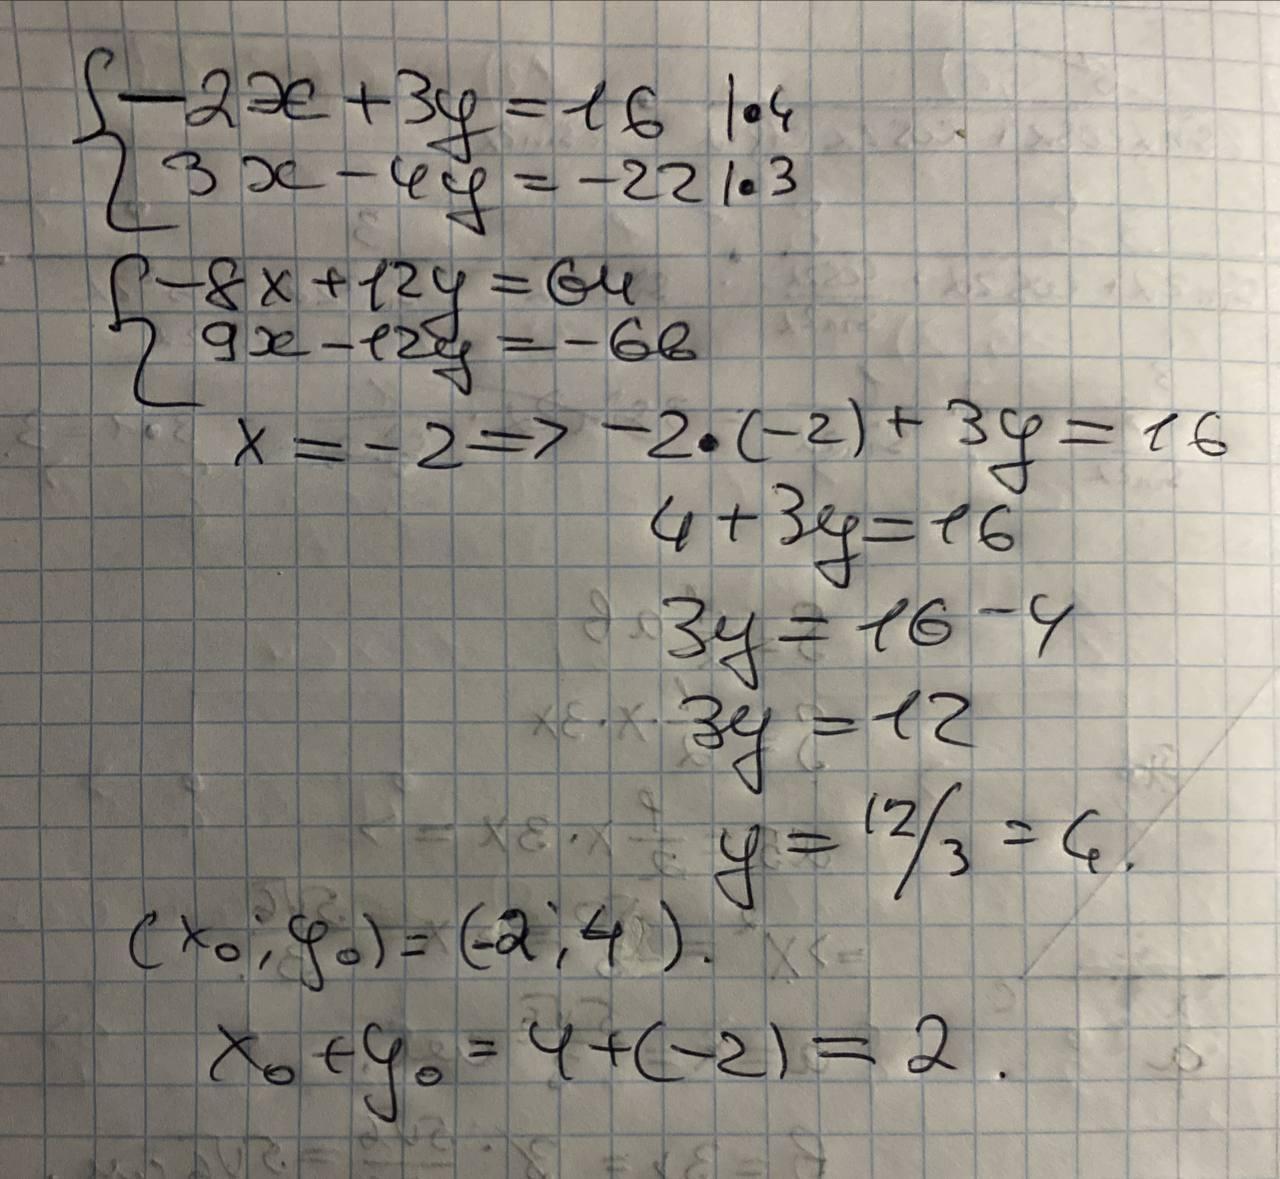 { -2x + 3y = 16 |·4
3x - 4y = -22 |·3
{ -8x + 12y = 64
9x - 12y = -66
x = -2 => -2·(-2) + 3y = 16
4 + 3y = 16
3y = 16 - 4
3y = 12
y = 12/3 = 4.
(x₀; y₀) = (-2; 4).
x₀ + y₀ = 4 + (-2) = 2.